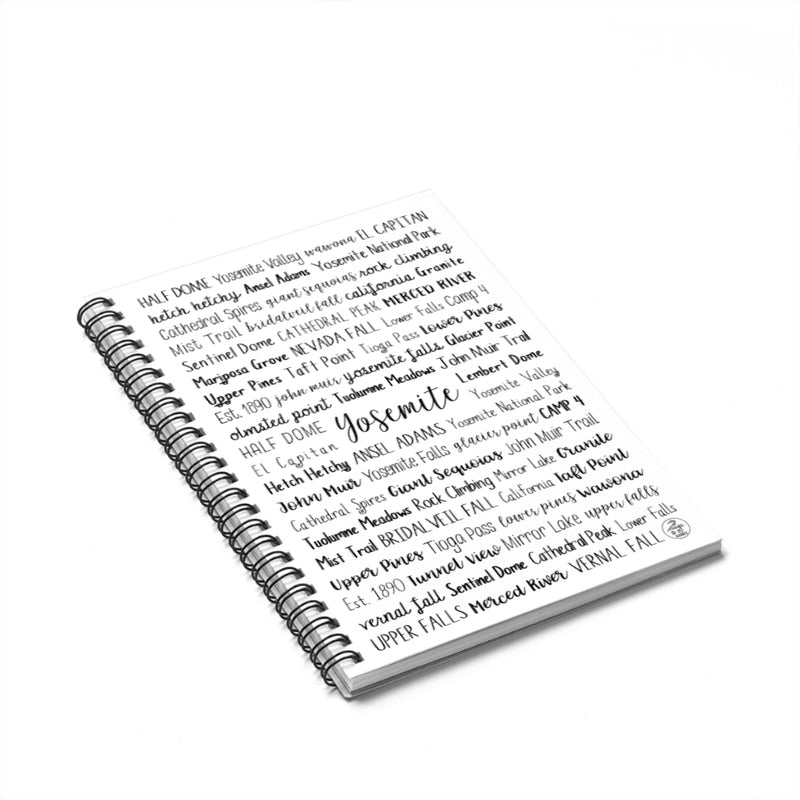 HALF DOME Yosemite Valley wawona EL CAPITAN
hetch hetchy Ansel Adams Yosemite National Park
Cathedral Spires giant sequoias rock climbing
Mist Trail bridalveil fall california Granite
Sentinel Dome CATHEDRAL PEAK MERCED RIVER
Mariposa Grove NEVADA FALL Lower Falls Camp 4
Upper Pines Taft Point Tioga Pass Lower Pines
Est. 1890 john muir yosemite falls Glacier Point
olmsted point Tuolumne Meadows John Muir Trail
HALF DOME Yosemite Lembert Dome
El Capitan Yosemite Valley
Hetch Hetchy ANSEL ADAMS Yosemite National Park
John Muir Yosemite Falls glacier point CAMP 4
Cathedral Spires Giant Sequoias John Muir Trail
Tuolumne Meadows Rock Climbing Mirror Lake Granite
Mist Trail BRIDALVEIL FALL California Taft Point
Upper Pines Tioga Pass lower pines Wawona
Est. 1890 Tunnel View Mirror Lake upper falls
vernal fall Sentinel Dome Cathedral Peak Lower Falls
UPPER FALLS Merced River VERNAL FALL